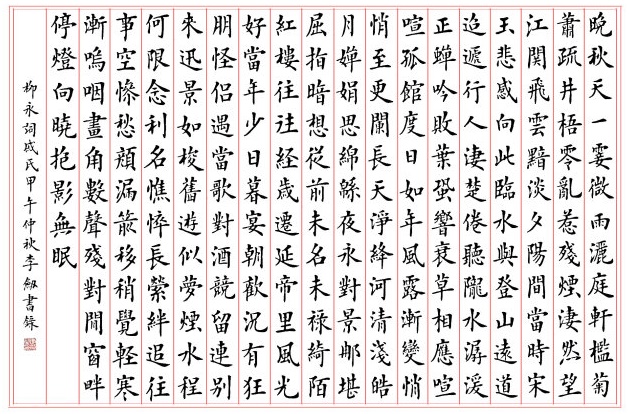 晚秋天一霎微雨灑庭軒檻菊
蕭疏井梧零亂惹殘煙淒然望
江關飛雲黯淡夕陽間當時宋
玉悲感向此臨水與登山遠道
迢遞行人淒楚倦聽隴水潺湲
正蟬吟敗葉蛩響衰草相應喧
喧孤館度日如年風露漸變悄
悄至更闌長天淨絳河清淺皓
月嬋娟思綿綿夜永對景那堪
屈指暗想從前未名未祿綺陌
紅樓往往經歲遷延帝里風光
好當年少日暮宴朝歡況有狂
朋怪侶遇當歌對酒競留連別
來迅景如梭舊遊似夢煙水程
何限念利名憔悴長縈絆追往
事空慘愁顏漏箭移稍覺輕寒
漸嗚咽畫角數聲殘對閒窗畔
停燈向曉抱影無眠
柳永詞戚氏甲午仲秋李釼書錄